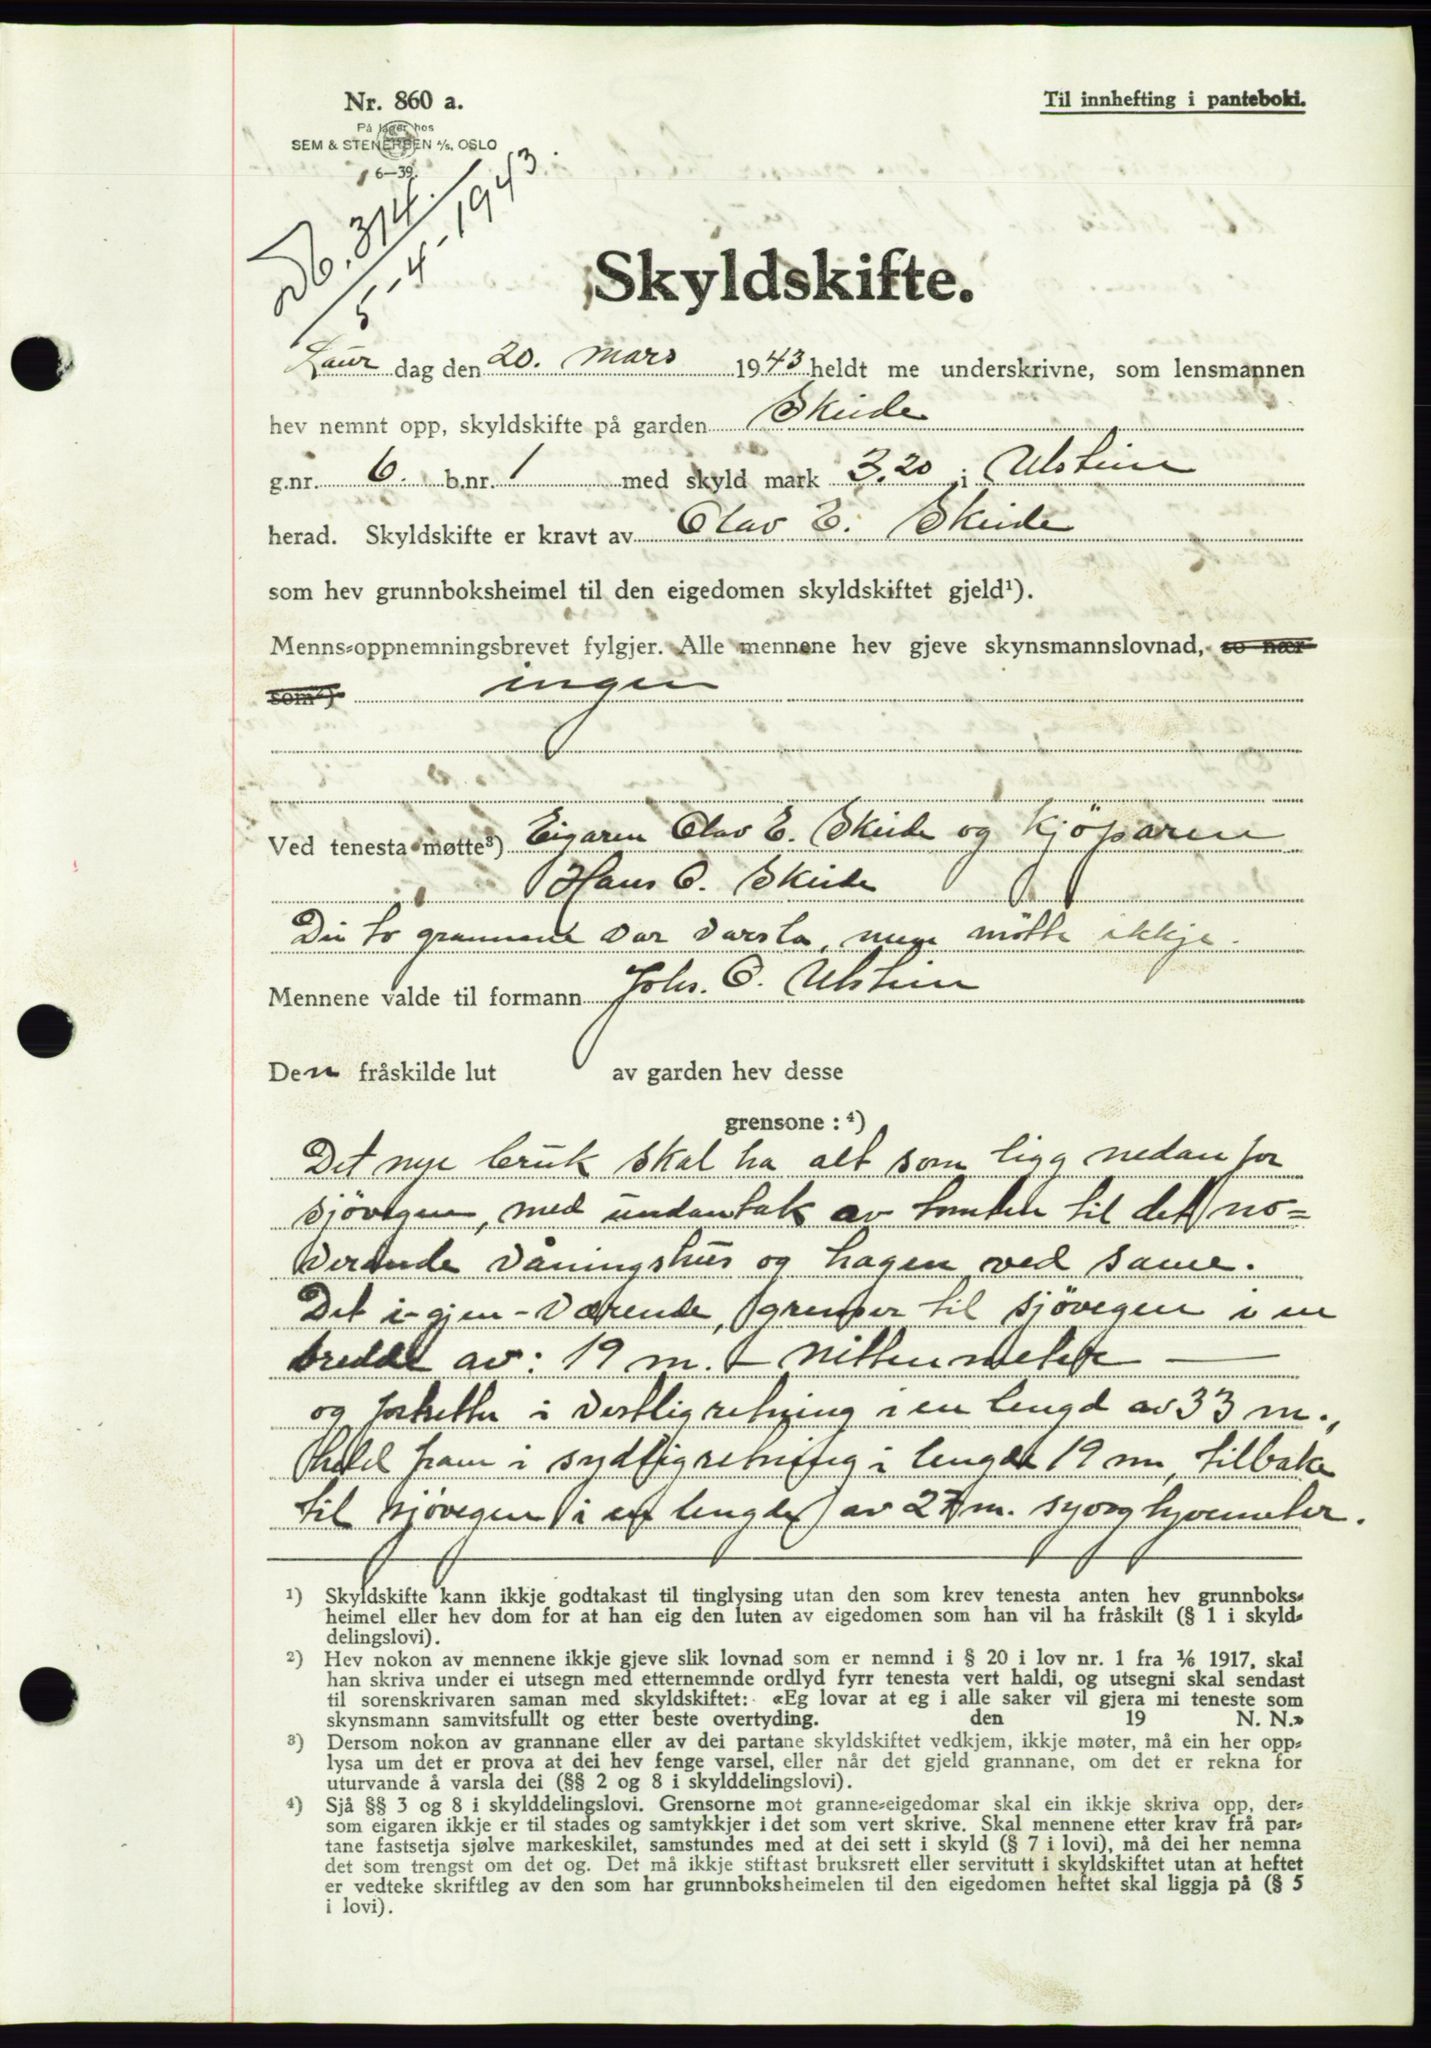 Nr. 860 a.
Til innhefting i panteboki.
På lager hos
SEM & STENERSEN A/S, OSLO
6—39.
Db. 314.
5-4-1943.
Skyldskifte.
Laur dag den 20. mars 1943 heldt me underskrivne, som lensmannen
hev nemnt opp, skyldskifte på garden Skeide
g.nr. 6. b.nr. 1 med skyld mark 3.20 i Ulstein
herad. Skyldskifte er kravt av Olav E. Skeide
som hev grunnboksheimel til den eigedomen skyldskiftet gjeld¹).
Menns-oppnemningsbrevet fylgjer. Alle mennene hev gjeve skynsmannslovnad, so nær
som²) ingen
Ved tenesta møtte³) Eigaren Olav E. Skeide og kjöparen
Hans O. Skeide
Dei to grannane var varsla, men mötte ikkje.
Mennene valde til formann Johs. O. Ulstein
Den fråskilde lut av garden hev desse
grensone : ⁴)
Det nye bruk skal ha alt som ligg nedanfor
sjövegen, med undantak av tomten til det no=
verande våningshus og hagen ved same.
Det i-gjen-værende, grenser til sjövegen i en
bredde av: 19 m. – nitten meter —
og fortsetter i vestlig retning i en lengd av 33 m.,
held fram i sydlig retning i lengde 19 m, tilbake
til sjövegen i en lengde av 27 m. syvogtyvemeter.
¹) Skyldskifte kann ikkje godtakast til tinglysing utan den som krev tenesta anten hev grunnboks-
heimel eller hev dom for at han eig den luten av eigedomen som han vil ha fråskilt (§ 1 i skyld-
delingslovi).
²) Hev nokon av mennene ikkje gjeve slik lovnad som er nemnd i § 20 i lov nr. 1 fra 1/6 1917, skal
han skriva under ei utsegn med etternemnde ordlyd fyrr tenesta vert haldi, og utsegni skal sendast
til sorenskrivaren saman med skyldskiftet: «Eg lovar at eg i alle saker vil gjera mi teneste som
skynsmann samvitsfullt og etter beste overtyding. den 19 N. N.»
³) Dersom nokon av grannane eller av dei partane skyldskiftet vedkjem, ikkje møter, må ein her opp-
lysa um det er prova at dei hev fenge varsel, eller når det gjeld grannane, om det er rekna for
uturvande å varsla dei (§§ 2 og 8 i skylddelingslovi).
⁴) Sjå §§ 3 og 8 i skylddelingslovi. Grensorne mot granne-eigedomar skal ein ikkje skriva opp, der-
som eigaren ikkje er til stades og samtykkjer i det som vert skrive. Skal mennene etter krav frå par-
tane fastsetja sjølve markeskilet, samstundes med at dei sett i skyld (§ 7 i lovi), må dei her nemna
det som trengst om det og. Det må ikkje stiftast bruksrett eller servitutt i skyldskiftet utan at heftet
er vedteke skriftleg av den som har grunnboksheimelen til den eigedomen heftet skal liggja på (§ 5
i lovi).